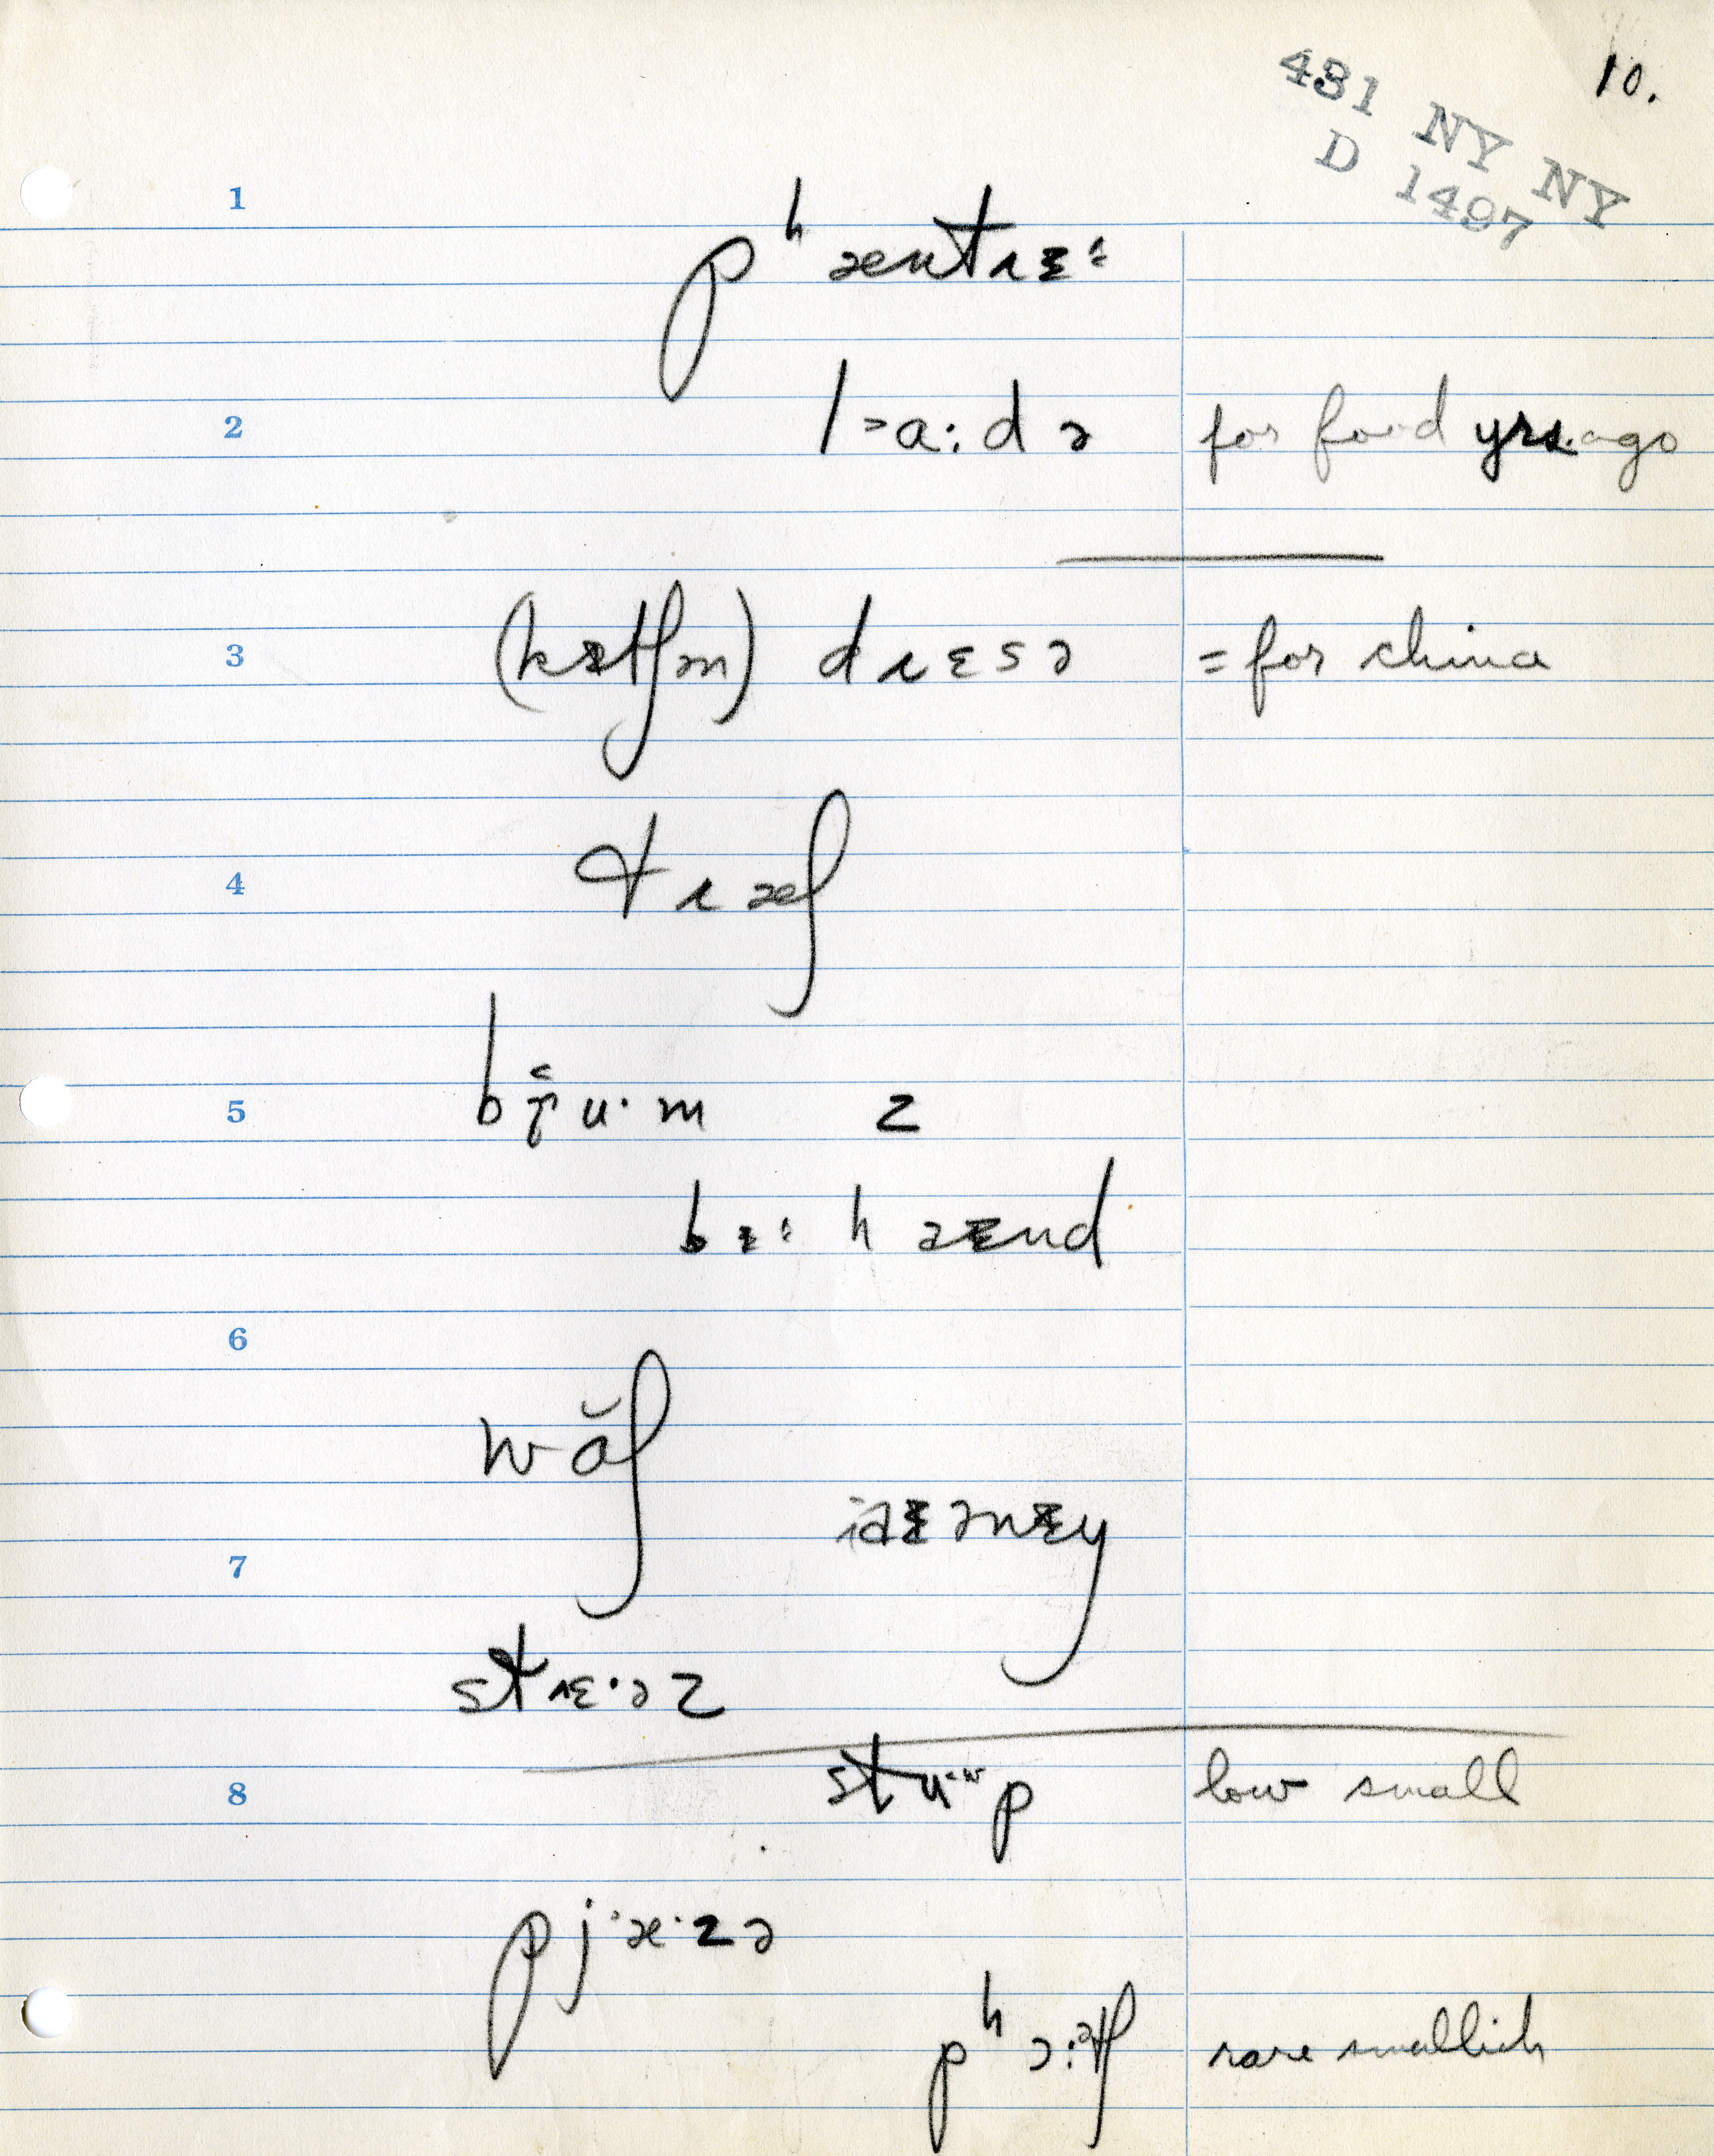 10.
431 NY NY
D 1497
1
pʰæntɹɪ
2 l>a:də for food yrs. ago
3 (kɪtʃən) dɹɛsə = for china
4 tɹæʃ
5 u·m z
hænd
6
wɑ̆ʃ
7
stɹɛ·əz
8 stu·ʷp low small
pj·æ·zə
pʰɔ:ətʃ rare smallish